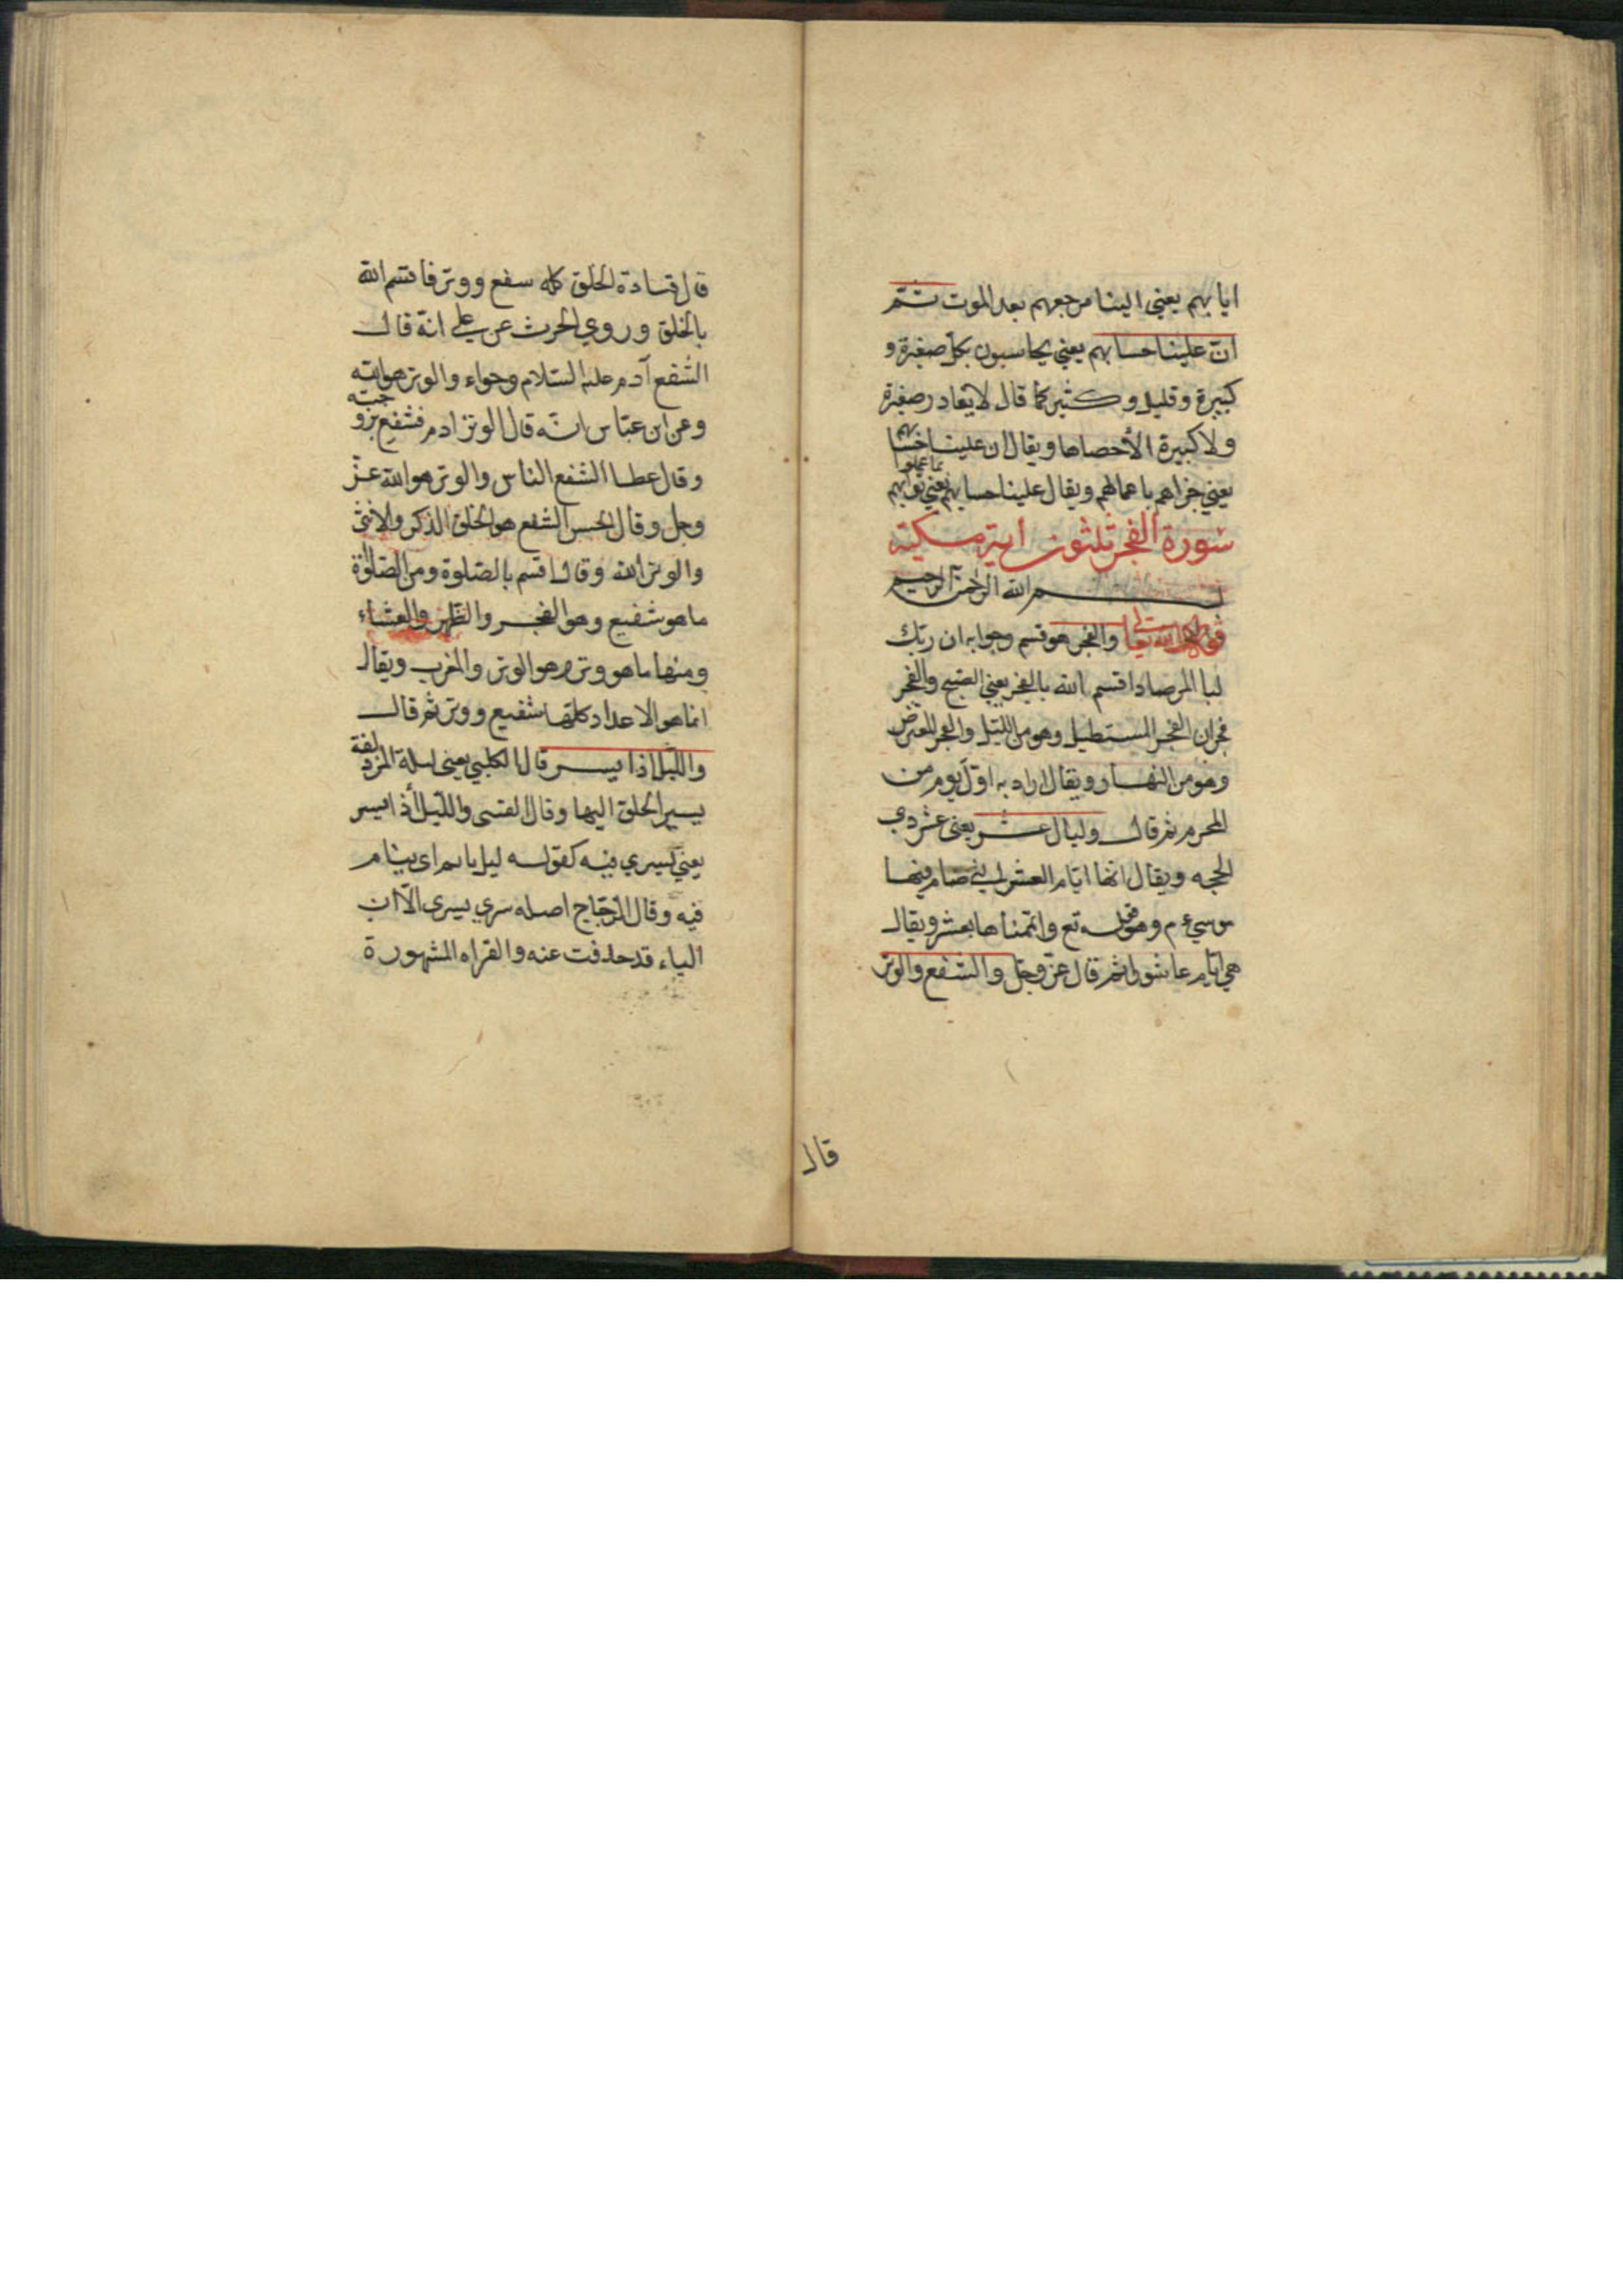 ايابهم يعني الينا مرجعهم بعد الموت ثمّ
انّ علينا حسابهم يعني يحاسبون بكل صغيرة و
كبيرة وقليل وكثير كما قال لا يغادر صغيرة
ولا كبيرة الا احصاها ويقال ان علينا حسابهم
يعني جزاهم باعمالهم ويقال علينا حسابهم يعني ثوابهم بما عملوا
سورة الفجر ثلثون اية مكية
بسم الله الرحمن الرحيم
قوله تعالى والفجر هو قسم وجوابه ان ربك
لبا المرصاد اقسم الله بالفجر يعني الصبح والفجر
فجران الفجر المستطيل وهو من الليل والفجر المعترض
وهو من النهار ويقال اراد به اوّل يوم من
المحرم ثم قال وليال عشر يعني عشر ذي
الحجه ويقال انها ايام العشر التي صام فيها
موسى ءم وهو قوله تع واتممناها بعشر ويقال
هي ايام عاشورا ثم قال عزّ وجلّ والشفع والوتر
قال
قال قتادة الخلق كله شفع ووتر فاقسم الله
بالخلق وروي الحرث عن علي انّه قال
الشفع آدم عليه السلام وحواء والوتر هو الله
وعن ابن عبّاس انّه قال الوتر ادم فشفع بزوجته
وقال عطا الشفع الناس والوتر هو الله عزّ
وجل وقال الحسن الشفع هو الخلق الذكر والانثى
والوتر الله وقال اقسم بالصلوة ومن الصلوة
ما هو شفيع وهو الفجر والظهر والعشاء
ومنها ما هو وتر وهو الوتر والمغرب ويقال
انما هو الاعداد كلها شفيع ووتر ثم قال
والليل اذا يسر قال الكلبي يعني ليلة المزدلفة
يسير الخلق اليها وقال القتبى والليل اذا يسر
يعني يسري فيه كقوله ليل نايم اى ينام
فيه وقال الزجّاج اصله سري يسرى الّا ان
الياء قد حذفت عنه والقراه المشهورة